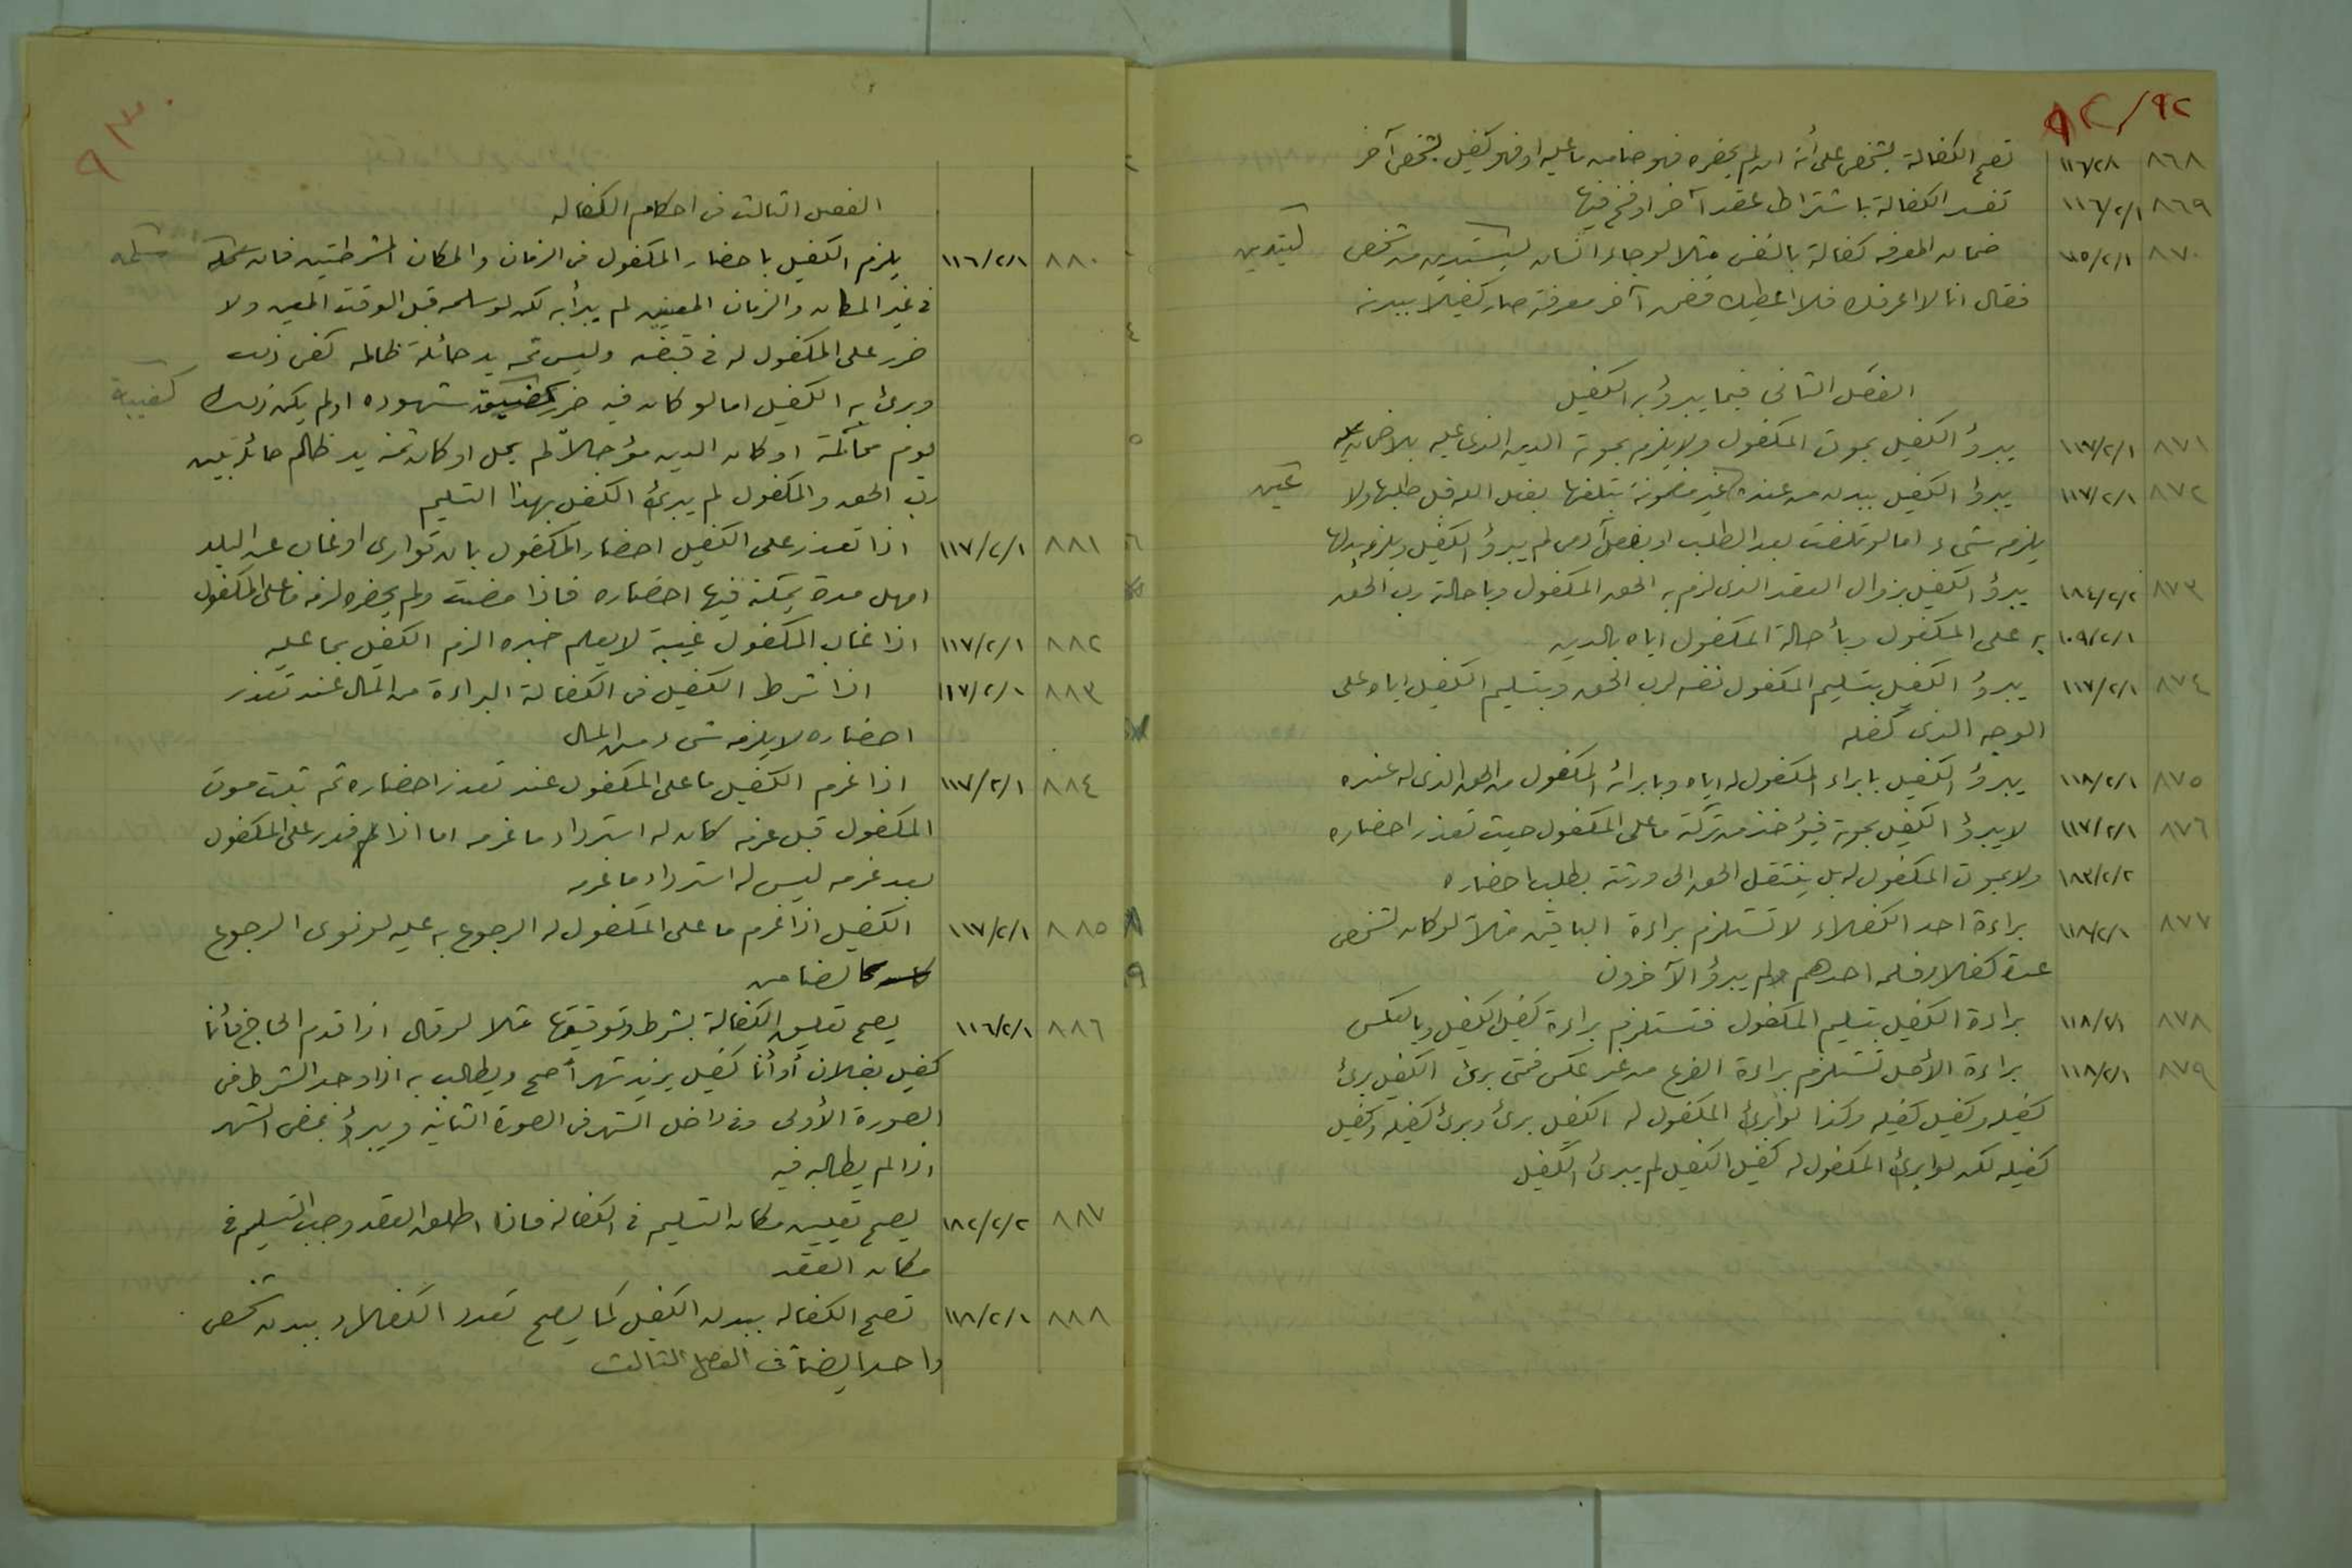 ٩٢/٩٢
٨٦٨ ١١٦/٢/١ تصح الكفالة بشخص على أنه ان لم يحضره فهو ضامن ما عليه او فهو كفيل بشخص آخر
٨٦٩ ١١٦/٢/١ تفسد الكفالة باشتراط عقد آخر او فسخ فيها
٨٧٠ ١١٥/٢/١ ضمان المعرفه كفالة بالنفس مثلا لو جاء انسان ليستدين من شخص ليستدين
فقال انا لا اعرفك فلا اعطيك فضمن آخر معرفته صار كفيلا ببدنه
الفصل الثانى فيما يبرؤ به الكفيل
٨٧١ ١١٧/٢/١ يبرؤ الكفيل بموت المكفول ولا يلزم بموته الدين الذى عليه بلا ضمان
٨٧٢ ١١٧/٢/١ يبرؤ الكفيل ببدن من عنده عين غير مضمونة بتلفها بفعل الله قبل طلبها ولا عين
يلزمه شىء اما لو تلفت بعد الطلب او بفعل آدمى لم يبرؤ الكفيل ويلزمه بدلها
٨٧٣ ١٨٤/٢/٢ يبرؤ الكفيل بزوال العقد الذى لزم به الحق المكفول وباحالة رب الحق
١٠٩/٢/١ به على المكفول وبأحالة المكفول اياه بالدين
٨٧٤ ١١٧/٢/١ يبرؤ الكفيل بتسليم المكفول نفسه لرب الحق وبتسليم الكفيل اياه على
الوجه الذى كفله
٨٧٥ ١١٨/٢/١ يبرؤ الكفيل بابراء المكفول له اياه وبابرائه المكفول من الحق الذى له عنده
٨٧٦ ١١٧/٢/١ لا يبرؤ الكفيل بموته فيؤخذ من تركته ما على المكفول حيث تعذر احضاره
١٨٣/٢/٢ ولا بموت المكفول له بل ينتقل الحق الى ورثته بطلب احضاره
٨٧٧ ١١٨/٢/١ براءة احد الكفلاء لا تستلزم براءة الباقين مثلاً لو كان لشخص
عدة كفلاء فسلمه احدهم لم يبرؤ الآخرون
٨٧٨ ١١٨/٢/١ براءة الكفيل بتسليم المكفول تستلزم براءة كفيل الكفيل وبالعكس
٨٧٩ ١١٨/٢/١ براءة الأصل تستلزم براءة الفرع من غير عكس فمتى برئ الكفيل برئ
كفيله وكفيل كفيله وكذا لو أبرئ المكفول له الكفيل برئ وبرئ كفيله وكفيل
كفيله لكن لو ابرئ المكفول له كفيل الكفيل لم يبرئ الكفيل
٩٣
الفصل الثالث فى احكام الكفاله
٨٨٠ ١١٦/٢/١ يلزم الكفيل باحضار المكفول فى الزمان والمكان المشرطتين فان سلمه سلمه
فى غير المكان والزمان المعينين لم يبرأ به لكن لو سلمه قبل الوقت المعين ولا
ضرر على المكفول له فى قبضه وليس ثمه يد حائلة ظالمه كفى ذلك
وبرئ به الكفيل اما لو كان فيه ضرر كغيبة شهوده او لم يكن ذلك كغيبة
يوم محاكمة او كان الدين مؤجلاً لم يحل او كان ثمة يد ظالم حائل بين
رب الحق والمكفول لم يبرئ الكفيل بهذا التسليم
٨٨١ ١١٧/٢/١ اذا تعذر على الكفيل احضار المكفول بان توارى او غاب عن البلد
امهل مدة يمكنه فيها احضاره فاذا مضت ولم يحضره لزمه ما على المكفول
٨٨٢ ١١٧/٢/١ اذا غاب المكفول غيبة لا يعلم خبره الزم الكفيل بما عليه
٨٨٣ ١١٧/٢/١ اذا شرط الكفيل فى الكفالة البراءة من المال عند تعذر
احضاره لا يلزمه شىء من المال
٨٨٤ ١١٧/٢/١ اذا غرم الكفيل ما على المكفول عند تعذر احضاره ثم ثبت موت
المكفول قبل غرمه كان له استرداد ما غرمه اما اذا قدر على المكفول
بعد غرمه ليس له استرداد ما غرمه
٨٨٥ ١١٧/٢/١ الكفيل اذا غرم ما على المكفول له الرجوع به عليه لو نوى الرجوع
كالضامن
٨٨٦ ١١٦/٢/١ يصح تعليق الكفالة بشرط وتوقيتها مثلا لو قال اذا قدم الحاج فأنا
كفيل بفلان أو أنا كفيل بزيد شهراً صح ويطالب به اذا وجد الشرط فى
الصورة الأولى وفى داخل الشهر فى الصورة الثانية ويبرؤ بمضى الشهر
اذا لم يطالبه فيه
٨٨٧ ١٨٢/٢/٢ يصح تعيين مكان التسليم فى الكفالة فاذا اطلق العقد وجب التسليم فى
مكان العقد
٨٨٨ ١١٨/٢/١ تصح الكفاله ببدن الكفيل كما يصح تعدد الكفلاء ببدن شخص
واحد ايضاً فى الفصل الثالث